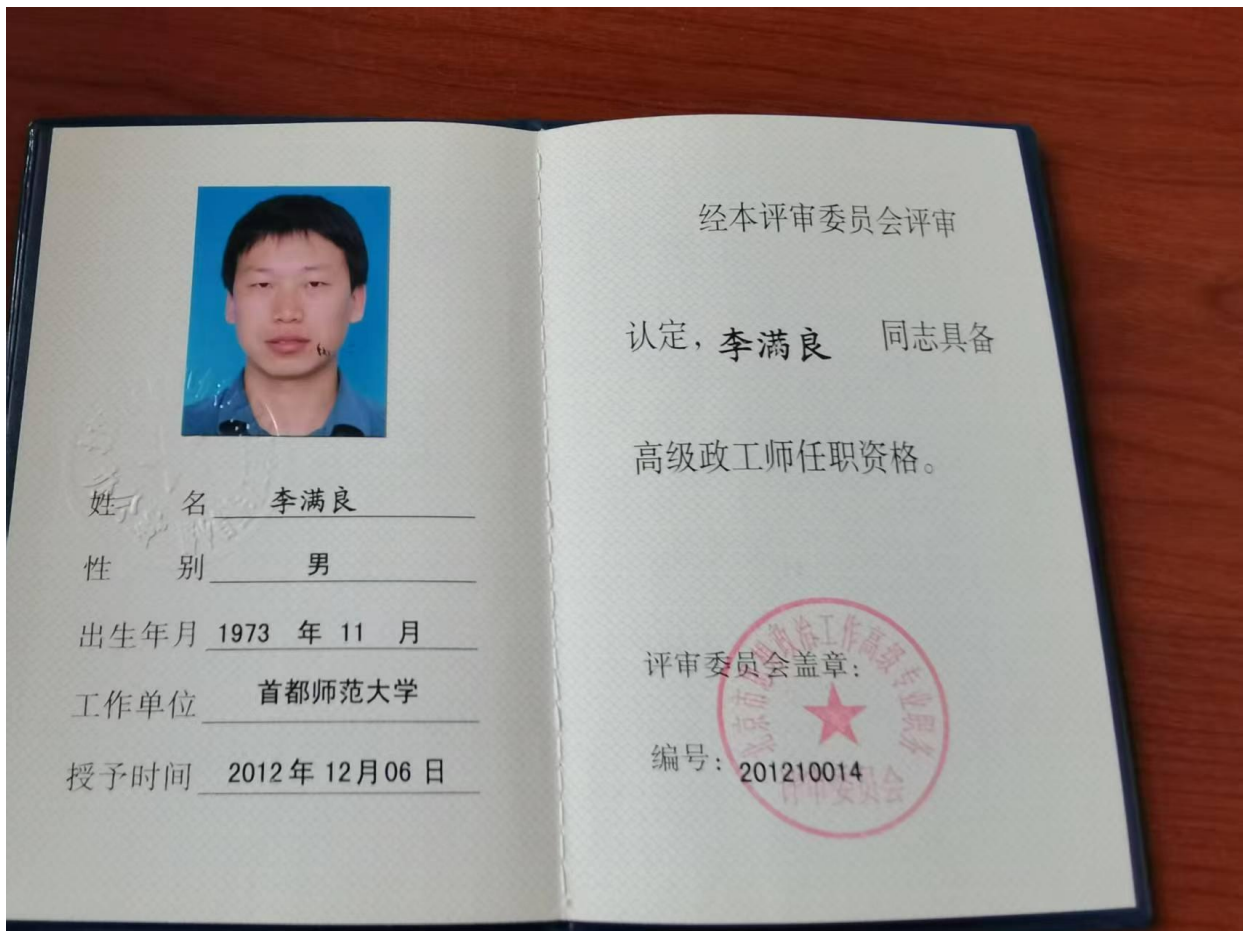 姓 名 李满良
性 别 男
出生年月 1973 年 11 月
工作单位 首都师范大学
授予时间 2012年 12月06 日
经本评审委员会评审
认定，李满良 同志具备
高级政工师任职资格。
评审委员会盖章：
编号：201210014
北京市思想政治工作高级专业职务
评审委员会